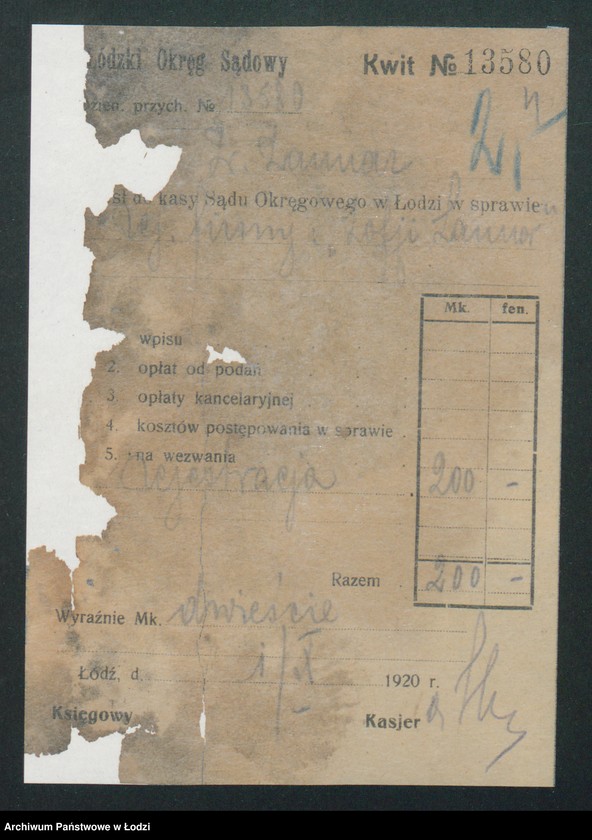 Łódzki Okręg Sądowy
Kwit № 13580
dzien. przych. № 13580
2,
do kasy Sądu Okręgowego w Łodzi w sprawie
firmy
Mk. fen.
wpisu
2. opłat od podań
3. opłaty kancelaryjnej
4. kosztów postępowania w sprawie
5. na wezwania
Rejestracja 200 -
Razem 200 -
Wyraźnie Mk. dwieście
Łódź, d. 1/X 1920 r.
Księgowy Kasjer
Archiwum Państwowe w Łodzi